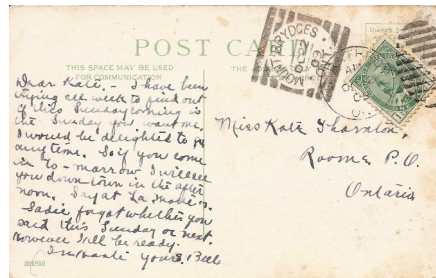 POST CARD
THIS SPACE MAY BE USED
FOR COMMUNICATION
Dear Kate. - I have been
trying all week to find out
if this Sunday coming is
the Sunday you want me.
I would be delighted to go
anytime. So if you come
in to-morrow I will see
you down town in the after
noon. Say at La
Sadie forgot whether you
said this Sunday or next.
However I'll be ready.
In haste Yours, Bell
201829
Miss Kate Thornton,
P.O.
Ontario
MOUNT BRYDGES
ONT